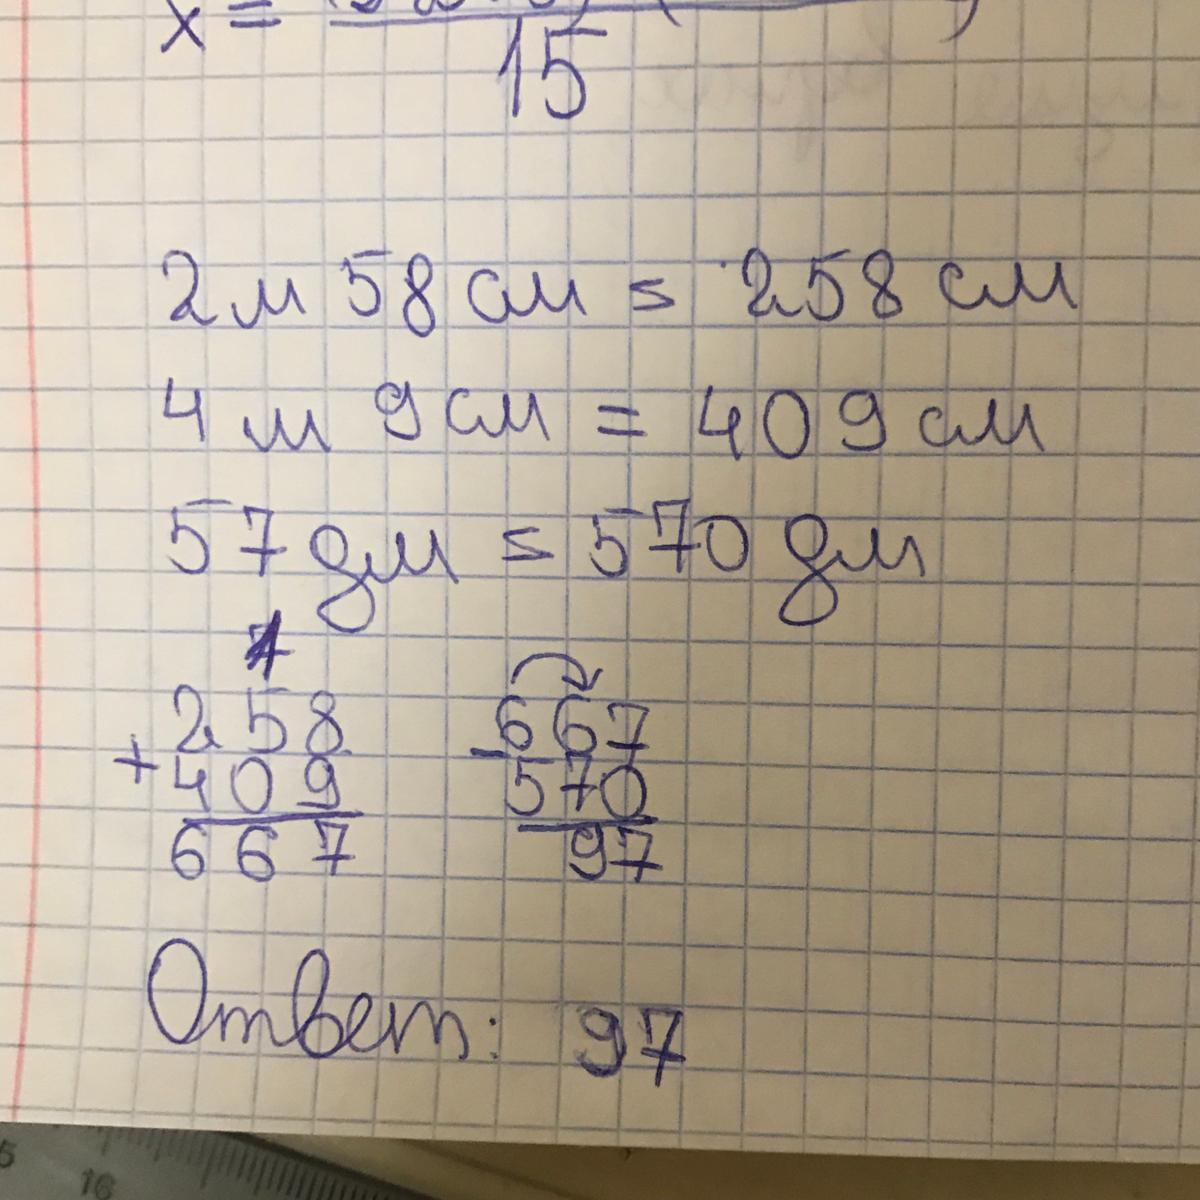 x =
15
2 м 58 см = 258 см
4 м 9 см = 409 см
57 дм = 570 дм
1
258 667
+ 409 - 570
667 97
Ответ: 97
5 16